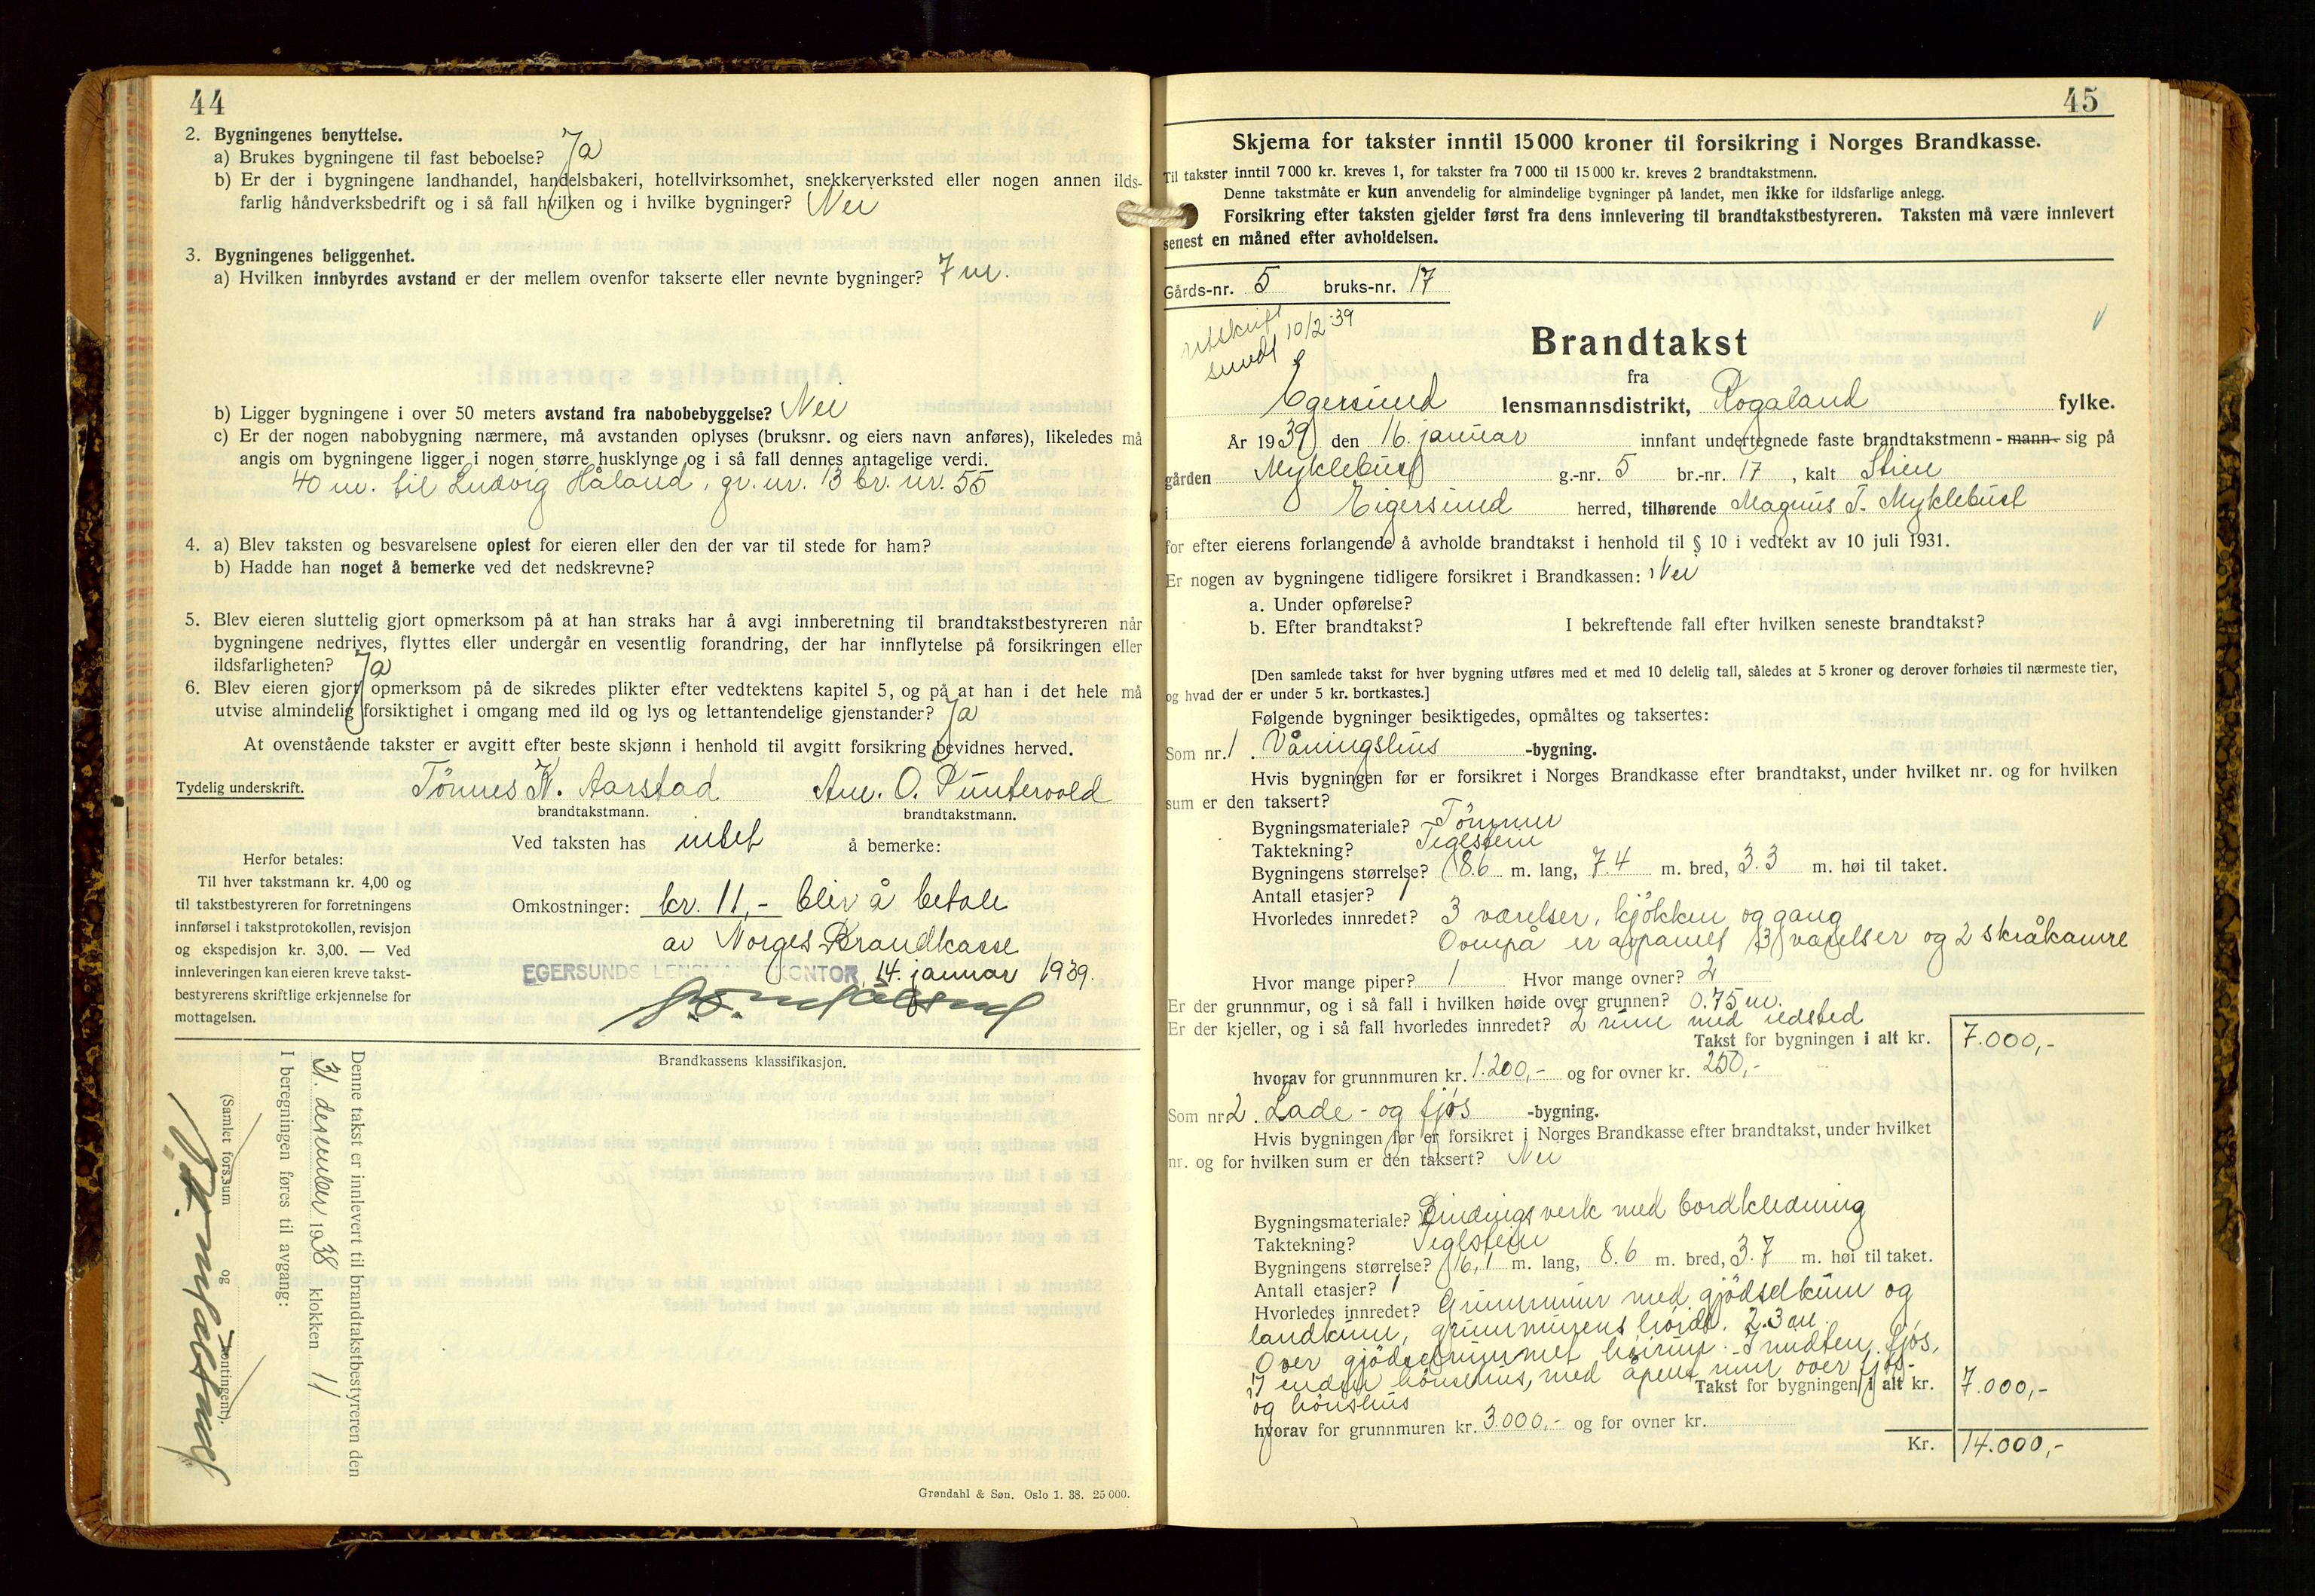 44
2. Bygningenes benyttelse.
a) Brukes bygningene til fast beboelse? Ja
b) Er der i bygningene landhandel, handelsbakeri, hotellvirksomhet, snekkerverksted eller nogen annen ilds-
farlig håndverksbedrift og i så fall hvilken og i hvilke bygninger? Nei
3. Bygningenes beliggenhet.
a) Hvilken innbyrdes avstand er der mellem ovenfor takserte eller nevnte bygninger? 7 m.
b) Ligger bygningene i over 50 meters avstand fra nabobebyggelse? Nei
c) Er der nogen nabobygning nærmere, må avstanden oplyses (bruksnr. og eiers navn anføres), likeledes må
angis om bygningene ligger i nogen større husklynge og i så fall dennes antagelige verdi.
40 m. til Ludvig Håland, gr. nr. 13 br. nr. 55
4. a) Blev taksten og besvarelsene oplest for eieren eller den der var til stede for ham?
b) Hadde han noget å bemerke ved det nedskrevne?
5. Blev eieren sluttelig gjort opmerksom på at han straks har å avgi innberetning til brandtakstbestyreren når
bygningene nedrives, flyttes eller undergår en vesentlig forandring, der har innflytelse på forsikringen eller
ildsfarligheten? Ja
6. Blev eieren gjort opmerksom på de sikredes plikter efter vedtektens kapitel 5, og på at han i det hele må
utvise almindelig forsiktighet i omgang med ild og lys og lettantendelige gjenstander? Ja
At ovenstående takster er avgitt efter beste skjønn i henhold til avgitt forsikring bevidnes herved.
Tydelig underskrift. Tønnes K. Aarstad Am. O. Puntervold
brandtakstmann. brandtakstmann.
Ved taksten has intet å bemerke:
Herfor betales:
Til hver takstmann kr. 4,00 og
til takstbestyreren for forretningens
innførsel i takstprotokollen, revisjon
og ekspedisjon kr. 3,00. — Ved
innleveringen kan eieren kreve takst-
bestyrerens skriftlige erkjennelse for
mottagelsen.
Omkostninger: kr. 11,- blir å betale
av Norges Brandkasse
EGERSUNDS KONTOR, 14. januar 1939.
Brandkassens klassifikasjon.
Denne takst er innlevert til brandtakstbestyreren den
31. desember 1938 klokken 11
I beregningen føres til avgang:
(Samlet fors.sum og kontingent).
Grøndahl & Søn. Oslo 1. 38. 25 000.
45
Skjema for takster inntil 15 000 kroner til forsikring i Norges Brandkasse.
Til takster inntil 7 000 kr. kreves 1, for takster fra 7 000 til 15 000 kr. kreves 2 brandtakstmenn.
Denne takstmåte er kun anvendelig for almindelige bygninger på landet, men ikke for ildsfarlige anlegg.
Forsikring efter taksten gjelder først fra dens innlevering til brandtakstbestyreren. Taksten må være innlevert
senest en måned efter avholdelsen.
Gårds-nr. 5 bruks-nr. 17
utskrift
sendt 10/2-39
Brandtakst
fra
Egersund lensmannsdistrikt, Rogaland fylke.
År 1939 den 16. januar innfant undertegnede faste brandtakstmenn - mann- sig på
gården Myklebust g.-nr. 5 br.-nr. 17, kalt Stien
i Eigersund herred, tilhørende Magnus T. Myklebust
for efter eierens forlangende å avholde brandtakst i henhold til § 10 i vedtekt av 10 juli 1931.
Er nogen av bygningene tidligere forsikret i Brandkassen: Nei
a. Under opførelse?
b. Efter brandtakst? I bekreftende fall efter hvilken seneste brandtakst?
[Den samlede takst for hver bygning utføres med et med 10 delelig tall, således at 5 kroner og derover forhøies til nærmeste tier,
og hvad der er under 5 kr. bortkastes.]
Følgende bygninger besiktigedes, opmåltes og taksertes:
Som nr. 1. Våningshus -bygning.
Hvis bygningen før er forsikret i Norges Brandkasse efter brandtakst, under hvilket nr. og for hvilken
sum er den taksert?
Bygningsmateriale? Tømmer
Taktekning? Teglstein
Bygningens størrelse? 8.6 m. lang, 7.4 m. bred, 3.3 m. høi til taket.
Antall etasjer? 1
Hvorledes innredet? 3 værelser, kjøkken og gang
Ovenpå er avpanelt 3 værelser og 2 skråkamre
Hvor mange piper? 1 Hvor mange ovner? 2
Er der grunnmur, og i så fall i hvilken høide over grunnen? 0.75 m.
Er der kjeller, og i så fall hvorledes innredet? 2 rum med ildsted
Takst for bygningen i alt kr. 7.000,-
hvorav for grunnmuren kr. 1.200,- og for ovner kr. 250,-
Som nr. 2. Lade- og fjøs -bygning.
Hvis bygningen før er forsikret i Norges Brandkasse efter brandtakst, under hvilket
nr. og for hvilken sum er den taksert? Nei
Bygningsmateriale? Bindingsverk med bordkledning
Taktekning? Teglstein
Bygningens størrelse? 16,1 m. lang, 8.6 m. bred, 3.7 m. høi til taket.
Antall etasjer? 1
Hvorledes innredet? Grunnmur med gjødselkum og
landkum, grunnmurens høide. 2.3 m.
Over gjødselrummet høirum. I midten fjøs,
I enden hønsehus, med åpent rum over fjøs-
og hønshus
Takst for bygningen i alt kr. 7.000,-
hvorav for grunnmuren kr. 3.000,- og for ovner kr.
Kr. 14.000,-